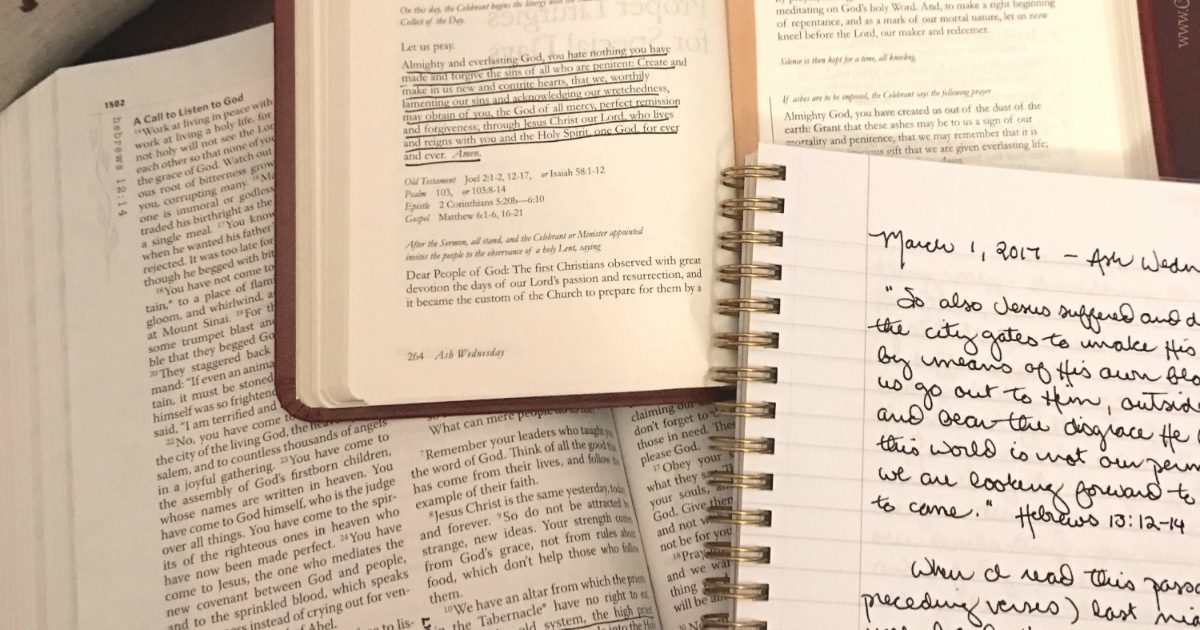 1502
hebrews 12:14
A Call to Listen to God
14Work at living in peace with
work at living a holy life, for
not holy will not see the Lor
each other so that none of you
the grace of God. Watch out
ous root of bitterness grow
you, corrupting many. 16Ma
one is immoral or godless
traded his birthright as the
a single meal. 17You know
when he wanted his father'
rejected. It was too late for
though he begged with bit
18You have not come to
tain,* to a place of flam
gloom, and whirlwind, a
at Mount Sinai. 19For th
some trumpet blast and
ble that they begged Go
20They staggered back
mand: "If even an anima
tain, it must be stoned
himself was so frightene
said, "I am terrified and
22No, you have come t
the city of the living God, the heave
salem, and to countless thousands of angels
in a joyful gathering. 23You have come to
the assembly of God's firstborn children,
whose names are written in heaven. You
have come to God himself, who is the judge
over all things. You have come to the spir-
its of the righteous ones in heaven who
have now been made perfect. 24You have
come to Jesus, the one who mediates the
new covenant between God and people,
and to the sprinkled blood, which speaks
instead of crying out for ven-
Abel.
to lis-
On this day, the Celebrant begins the liturgy with the
Collect of the Day.
Let us pray.
Almighty and everlasting God, you hate nothing you have
made and forgive the sins of all who are penitent: Create and
make in us new and contrite hearts, that we, worthily
lamenting our sins and acknowledging our wretchedness,
may obtain of you, the God of all mercy, perfect remission
and forgiveness; through Jesus Christ our Lord, who lives
and reigns with you and the Holy Spirit, one God, for ever
and ever. Amen.
Old Testament Joel 2:1-2, 12-17, or Isaiah 58:1-12
Psalm 103, or 103:8-14
Epistle 2 Corinthians 5:20b—6:10
Gospel Matthew 6:1-6, 16-21
After the Sermon, all stand, and the Celebrant or Minister appointed
invites the people to the observance of a holy Lent, saying
Dear People of God: The first Christians observed with great
devotion the days of our Lord's passion and resurrection, and
it became the custom of the Church to prepare for them by a
264 Ash Wednesday
meditating on God's holy Word. And, to make a right beginning
of repentance, and as a mark of our mortal nature, let us now
kneel before the Lord, our maker and redeemer.
Silence is then kept for a time, all kneeling.
If ashes are to be imposed, the Celebrant says the following prayer
Almighty God, you have created us out of the dust of the
earth: Grant that these ashes may be to us a sign of our
mortality and penitence, that we may remember that it is
gift that we are given everlasting life,
Amen.
What can mere people do to me
7Remember your leaders who taught you
the word of God. Think of all the good that
has come from their lives, and follow the
example of their faith.
8Jesus Christ is the same yesterday, today,
and forever. 9So do not be attracted by
strange, new ideas. Your strength comes
from God's grace, not from rules about
food, which don't help those who follow
them.
10We have an altar from which the priests
the Tabernacle* have no right to eat.
old system, the high priest
into the Hol
claiming our
don't forget to
those in need. These
please God.
17Obey your
what they say. Th
your souls, and
God. Give them
and not w
not be for you
18Pray
and we wan
thing
will be
March 1, 2017 – Ash Wedn
"So also Jesus suffered and d
the city gates to make His
by means of His own blo
us go out to Him, outside
and bear the disgrace He
this world is not our perm
we are looking forward to
to come." Hebrews 13:12-14
When I read this passa
preceding verses) last ni
www.C